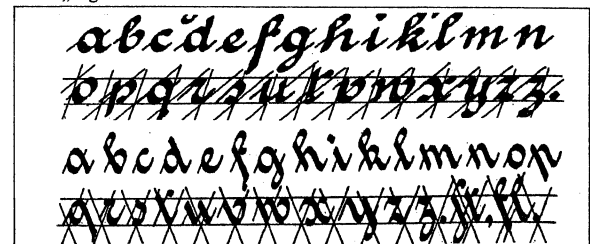 a b c d e f g h i k l m n
o p q r s u t v w x y z z.
a b c d e f g h i k l m n o p
q r s t u v w x y z z. ft. fl.